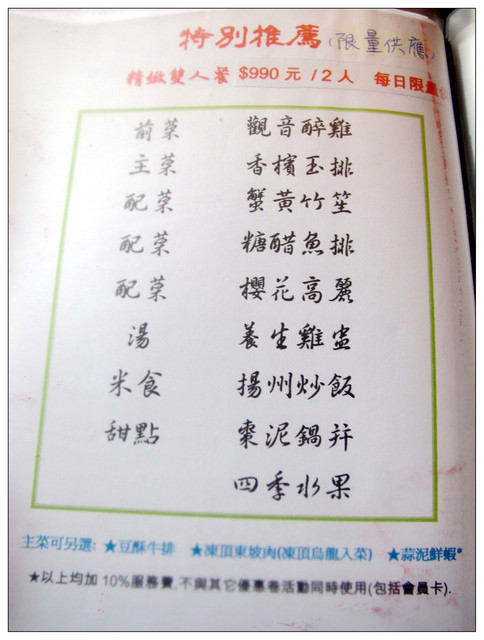 特別推薦(限量供應)
精緻雙人餐 $990 元 /2人 每日限量
前菜 觀音醉雞
主菜 香檳玉排
配菜 蟹黃竹笙
配菜 糖醋魚排
配菜 櫻花高麗
湯 養生雞盅
米食 揚州炒飯
甜點 棗泥鍋餅
四季水果
主菜可另選: ★豆酥牛排 ★凍頂東坡肉(凍頂烏龍入菜) ★蒜泥鮮蝦*
★以上均加 10%服務費,不與其它優惠卷活動同時使用(包括會員卡).